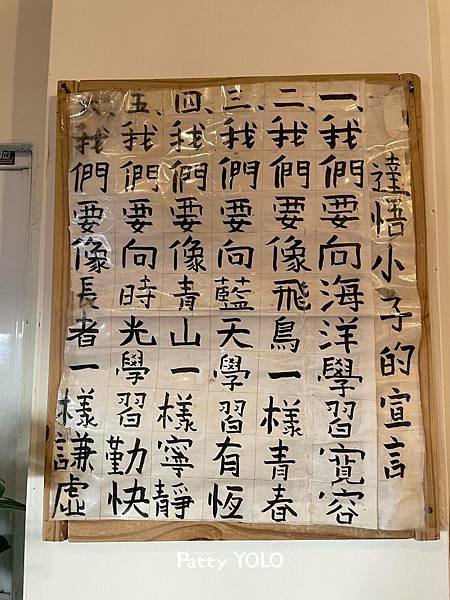 達悟小子的宣言
一、我們要向海洋學習寬容
二、我們要像飛鳥一樣青春
三、我們要向藍天學習有恆
四、我們要像青山一樣寧靜
五、我們要向時光學習勤快
六、我們要像長者一樣謙虛
Patty YOLO